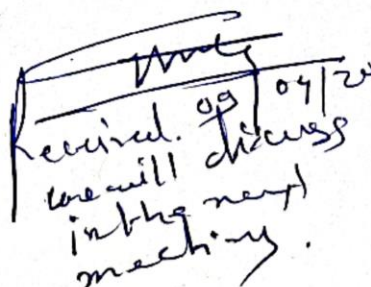 Received. 09/04/20
we will discuss
in the next
meeting.